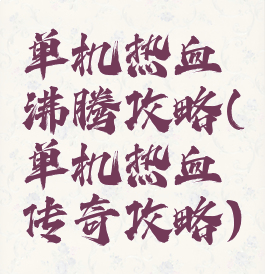 单机热血
沸腾攻略(
单机热血
传奇攻略)